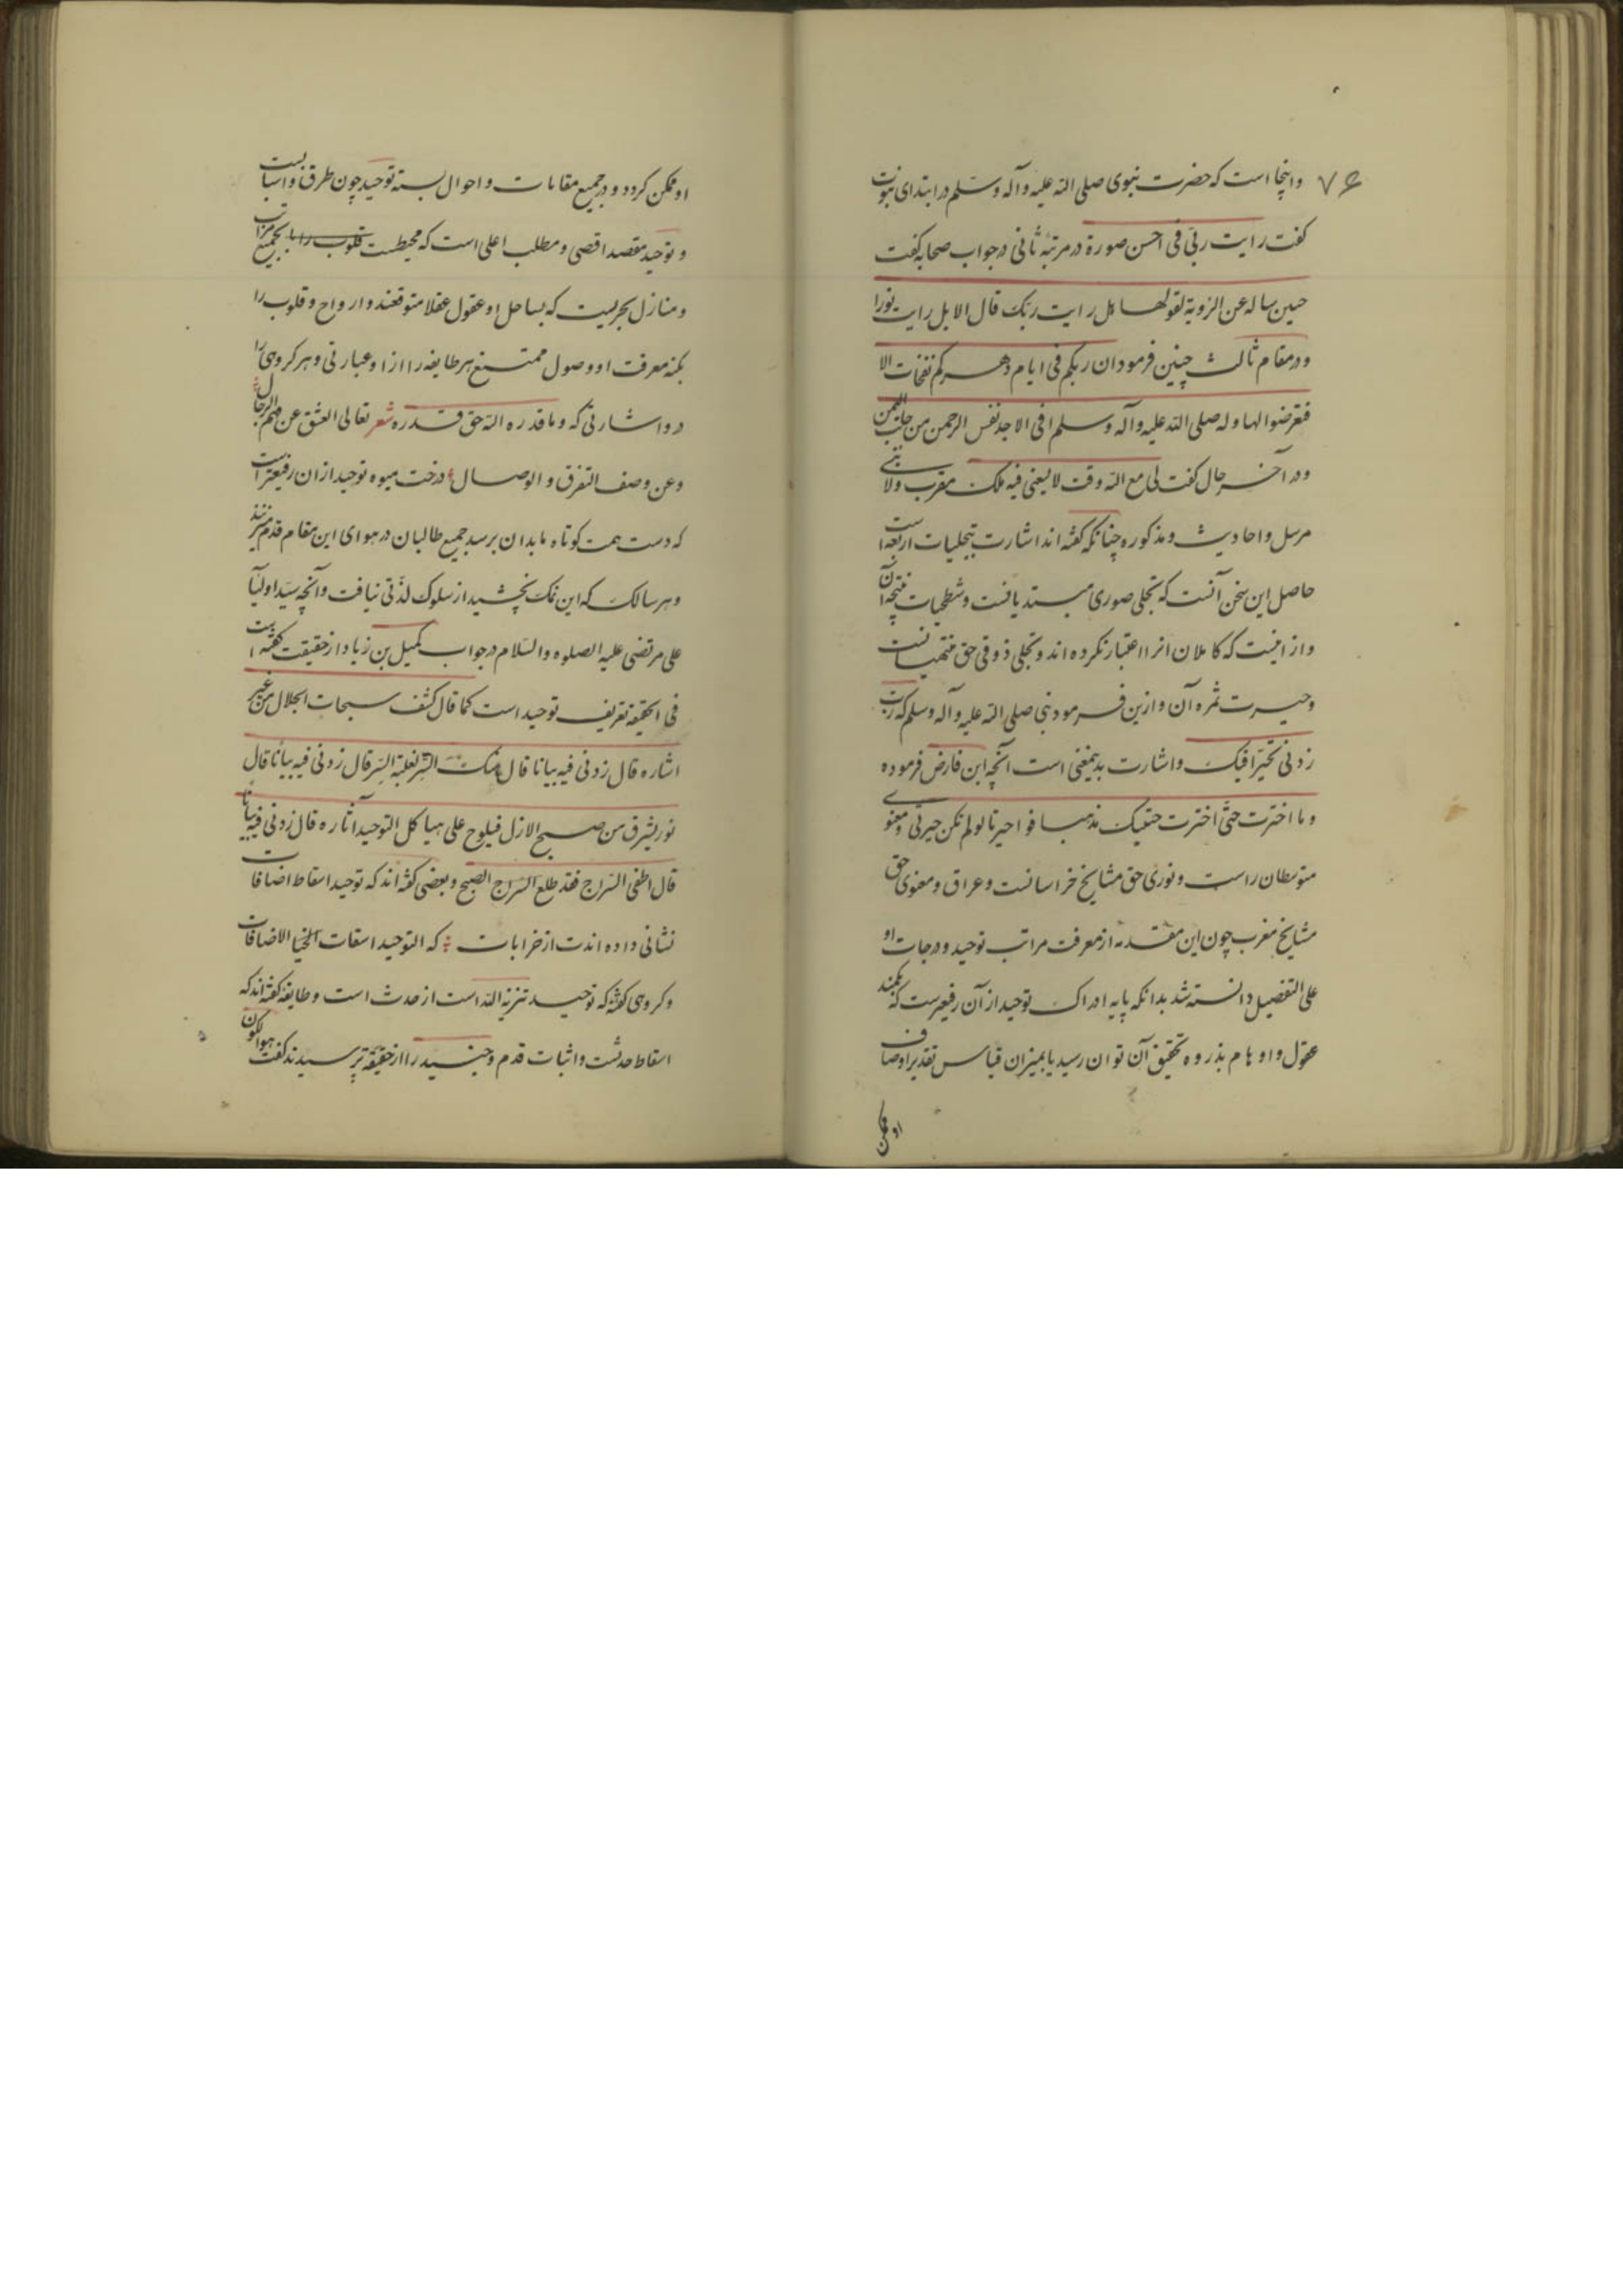 ۷۶
واینجا است که حضرت نبوی صلی الله علیه وآله وسلم در ابتدای نبوت
کفت رایت ربی فی احسن صورة در مرتبهٔ ثانی در جواب صحابه کفت
حین ساله عن الرویة لقولها هل رایت ربک قال لا بل رایت نورا
ودر مقام ثالث چنین فرمود ان ربکم فی ایام دهرکم نفخات الا
فتعرضوا لها وله صلی الله علیه وآله وسلم انی لاجد نفس الرحمن من جانب الیمن
ودر آخر حال کفت لی مع الله وقت لا یسعنی فیه ملک مقرب ولا نبی
مرسل واحادیث ومذکوره چنانکه کفته اند اشارت بتجلیات اربعه است
حاصل این سخن آنست که تجلی صوری مبتدیانست وشطحیات نتیجهٔ آن
واز اینست که کاملان انرا اعتبار نکرده اند وتجلی ذوقی حق منتهیانست
وحیرت ثمره آن وازین فرمود نبی صلی الله علیه وآله وسلم که رب
زدنی تحیرا فیک واشارت بدینمعنی است آنچه ابن فارض فرموده
وما اخترت حتی اخترت حبیک مذهبا فوا حیرتا لو لم تکن حیرتی ومعنوی
متوسطان راست ونوری حق مشایخ خراسانست وعراق ومعنوی حق
مشایخ مغرب چون این مقدمه از معرفت مراتب توحید ودرجات او
علی التفضیل دانسته شد بدانکه پایه ادراک توحید از آن رفیعترست که بکمند
عقول واوهام بذروه تحقیق آن توان رسید یا بمیزان قیاس تقدیر اوصاف
او ممکن
او ممکن کردد ودر جمیع مقامات واحوال بسته توحید چون طرق واسبابست
وتوحید مقصد اقصی ومطلب اعلی است که محیطست قلوب را با بجمیع مراتب
ومنازل بحریست که بساحل او عقول عقلا متوقفند وارواح وقلوب را
بکنه معرفت او وصول ممتنع هر طایفه را ازو عبارتی وهر کروهی را
درو اشارتی که وما قدره الله حق قدره شعر تعالی العشق عن فهم الرجال
وعن وصف التفرق والوصال درخت میوه توحید ازان رفیعتر است
که دست همت کوتاه ما بدان برسد جمیع طالبان در هوای این مقام قدم میزنند
وهر سالک که این نمک نچشید از سلوک لذتی نیافت وآنچه سید اولیا
علی مرتضی علیه الصلوه والسلام در جواب کمیل بن زیاد از حقیقت کفته است
فی الحقیقه تعریف توحید است کما قال کشف سبحات الجلال من غیر
اشاره قال زدنی فیه بیانا قال هتک الستر لغلبة السر قال زدنی فیه بیانا قال
نور یشرق من صبح الازل فیلوح علی هیاکل التوحید آثاره قال زدنی فیه بیانا
قال اطفی السراج فقد طلع السراج الصبح وبعضی کفته اند که توحید اسقاط اضافات
نشانی داده اندت از خرابات که التوحید اسقاط الاضافات
وکروهی کفته که توحید تنزیه الله است از حدث است وطایفه کفته اند که
اسقاط حدثست واثبات قدم وجنید را از حقیقة پرسیدند کفت هو الکون